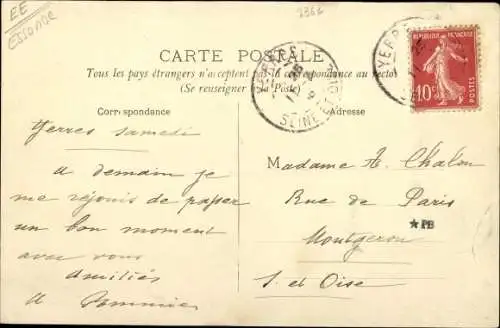 EE
ESSONNE
2366
CARTE POSTALE
Tous les pays étrangers n'acceptent pas la correspondance au recto
(Se renseigner à la Poste)
Correspondance
Adresse
YERRES
SEINE-ET-OISE
YERRES
RÉPUBLIQUE FRANÇAISE
10c
POSTES
Yerres samedi
a demain je
me réjouis de passer
un bon moment
avec vous
amitiés
Madame Chalon
Rue de Paris
★PB
Montgeron
S. et Oise